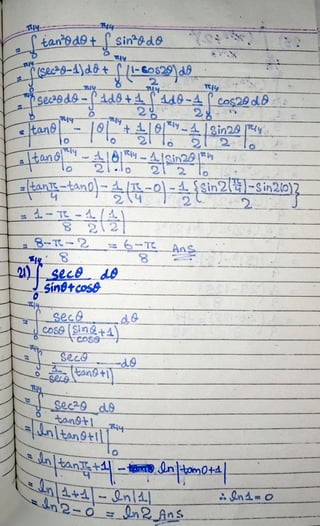 = ∫₀^π/4 tan²θdθ + ∫₀^π/4 sin²θdθ
= ∫₀^π/4 (sec²θ-1)dθ + ∫₀^π/4 (1-cos2θ)/2 dθ
= ∫₀^π/4 sec²θdθ - ∫₀^π/4 1dθ + 1/2 ∫₀^π/4 1dθ - 1/2 ∫₀^π/4 cos2θdθ
= |tanθ|₀^π/4 - |θ|₀^π/4 + 1/2 |θ|₀^π/4 - 1/2 |sin2θ/2|₀^π/4
= |tanθ|₀^π/4 - 1/2 |θ|₀^π/4 - 1/2 |sin2θ/2|₀^π/4
= (tan π/4 - tan0) - 1/2 (π/4 - 0) - 1/2 {sin2(π/4) - sin2(0)}/2
= 1 - π/8 - 1/2 (1/2)
= 8-π-2/8 = 6-π/8 Ans
21) ∫₀^π/4 secθ/sinθ+cosθ dθ
= ∫₀^π/4 secθ/cosθ(sinθ/cosθ +1) dθ
= ∫₀^π/4 secθ/(1/secθ)(tanθ+1) dθ
= ∫₀^π/4 sec²θ/tanθ+1 dθ
= |ln|tanθ+1||₀^π/4
= ln|tan π/4 +1| - ln|tan0+1|
= ln|1+1| - ln|1| ∴ ln1=0
= ln2 - 0 = ln2 Ans